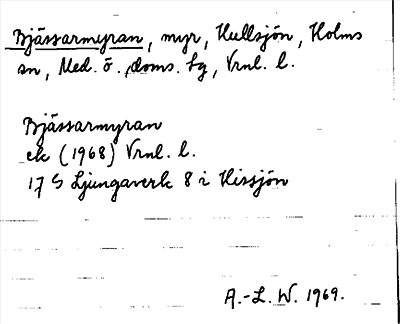 Bjässarmyran, myr, Hullsjön, Holms
sn, Med. ö. doms. bg, Vrnl. l.
Bjässarmyran
ek (1968) Vrnl. l.
17 S Ljungaverk 8 i Hissjön
A.-L. W. 1969.